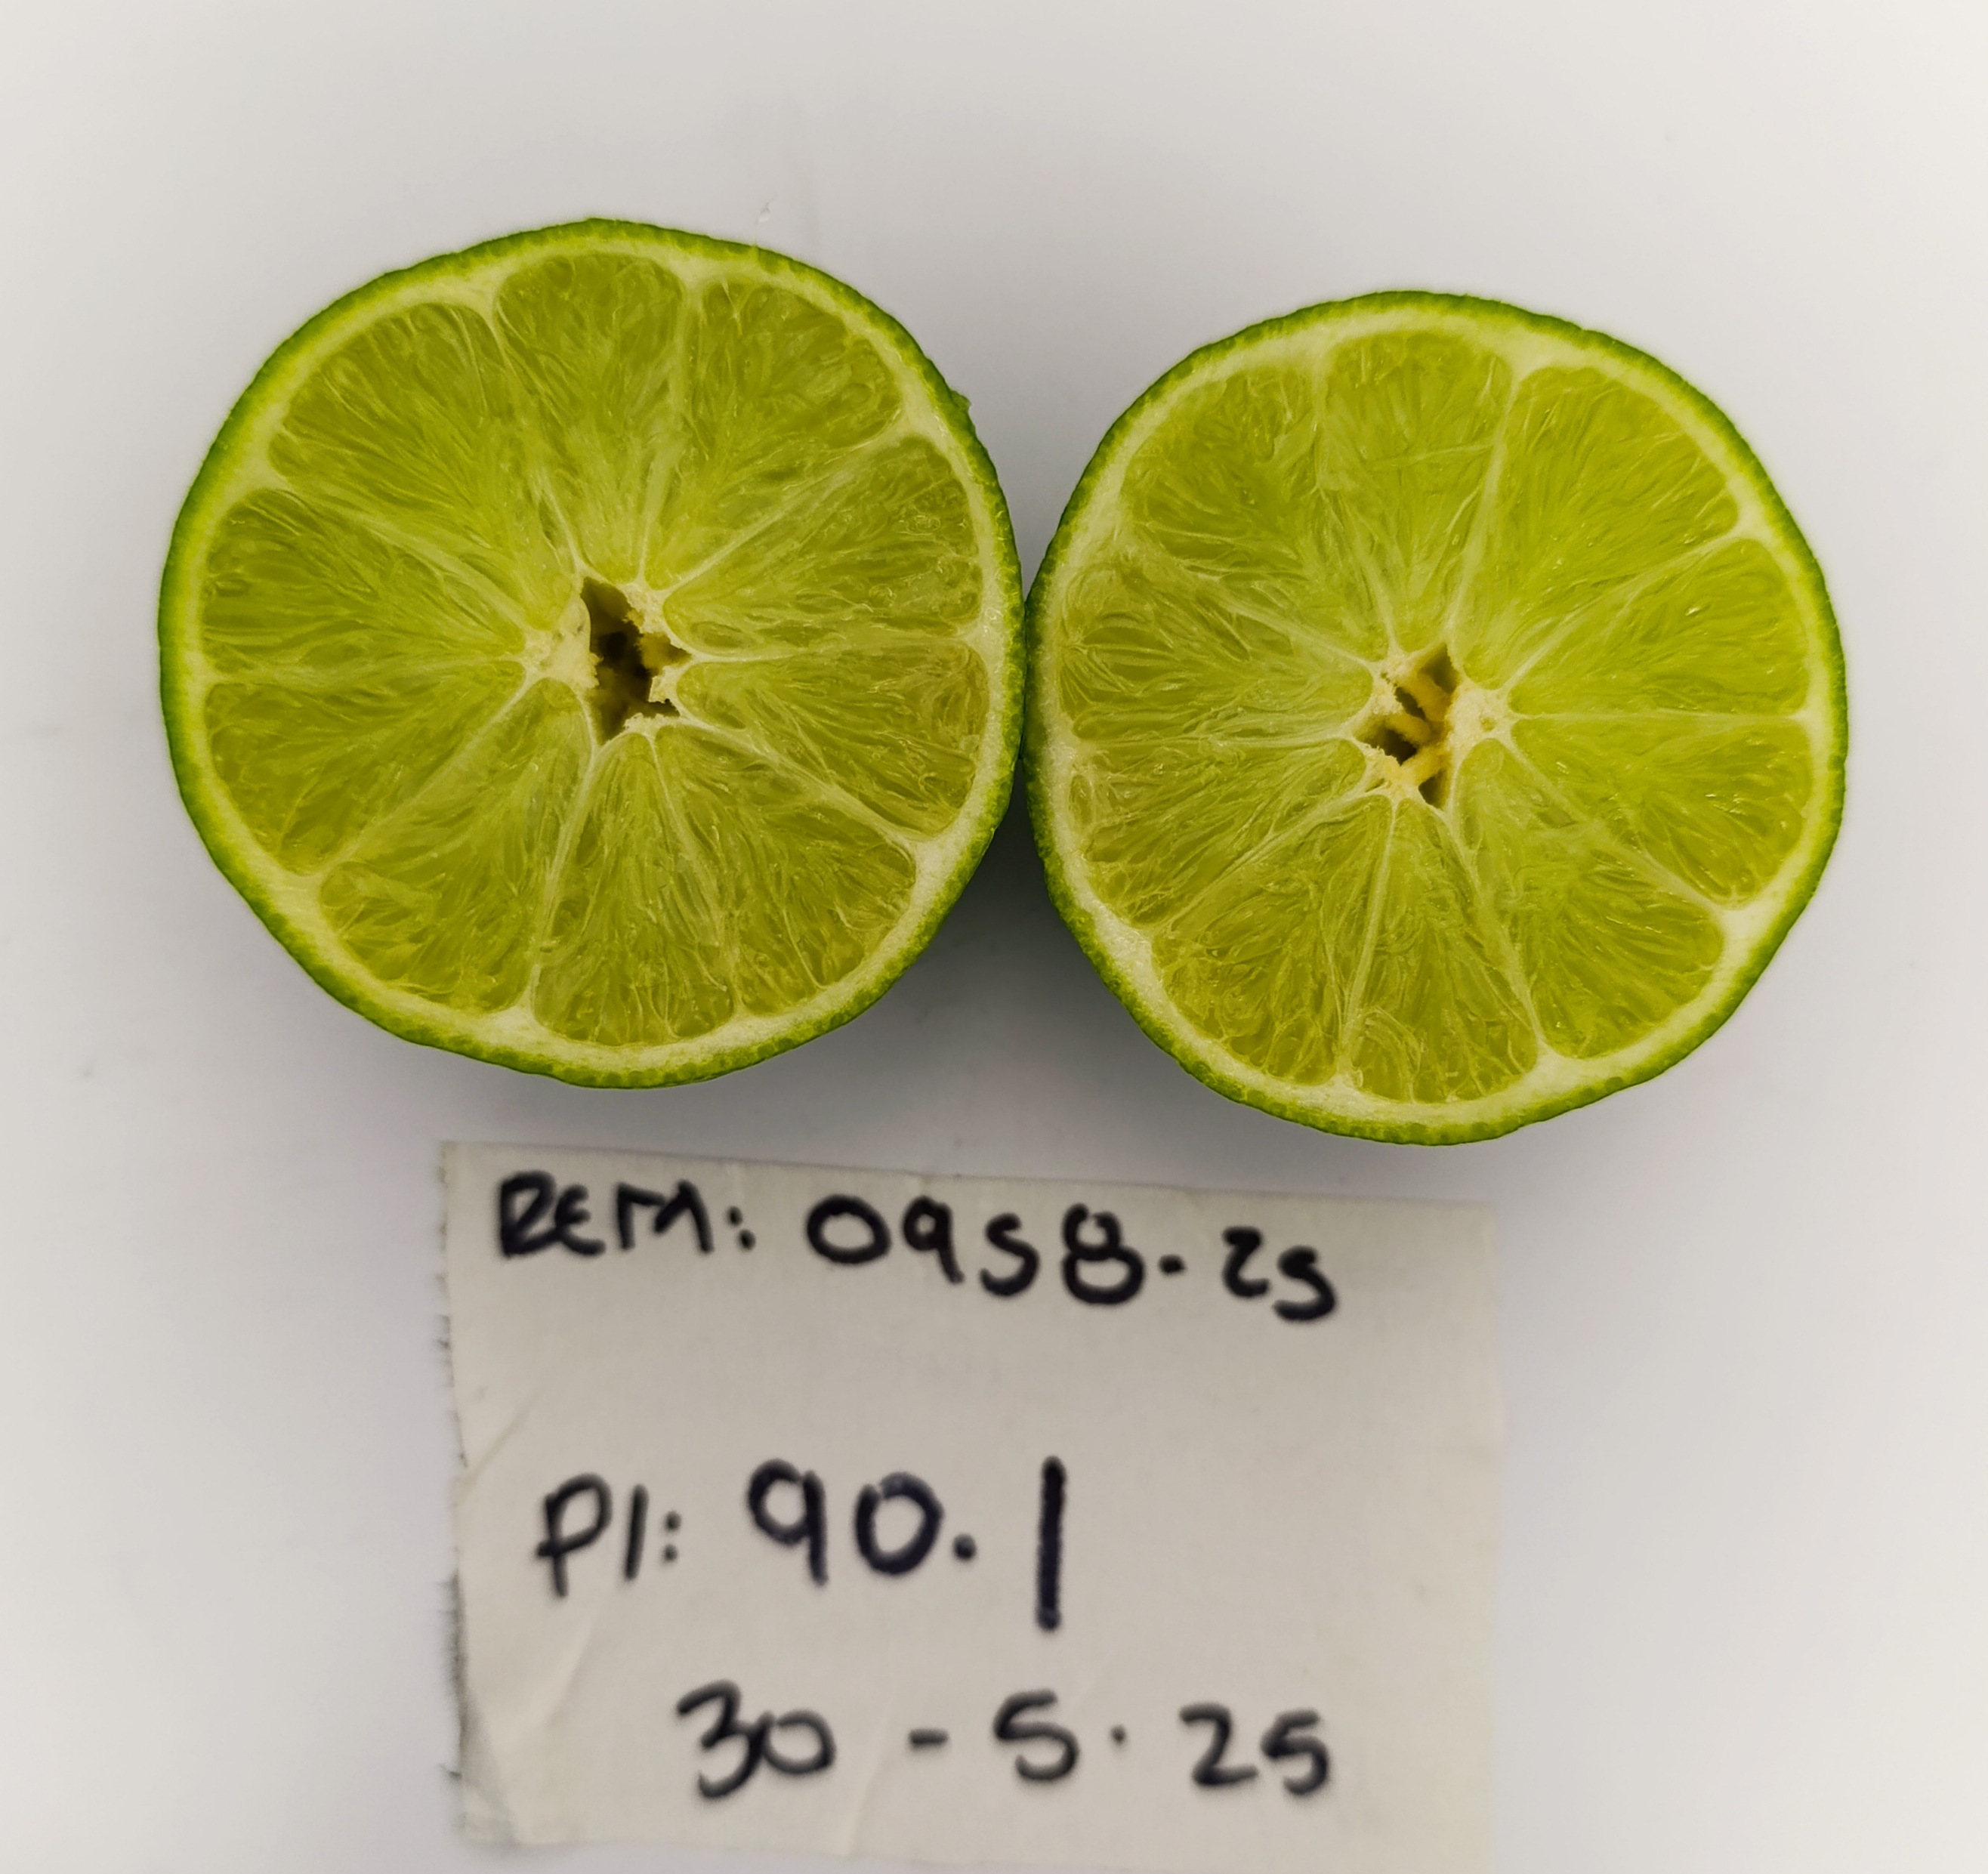 REM: 0958-25
PI: 90.1
30-5.25